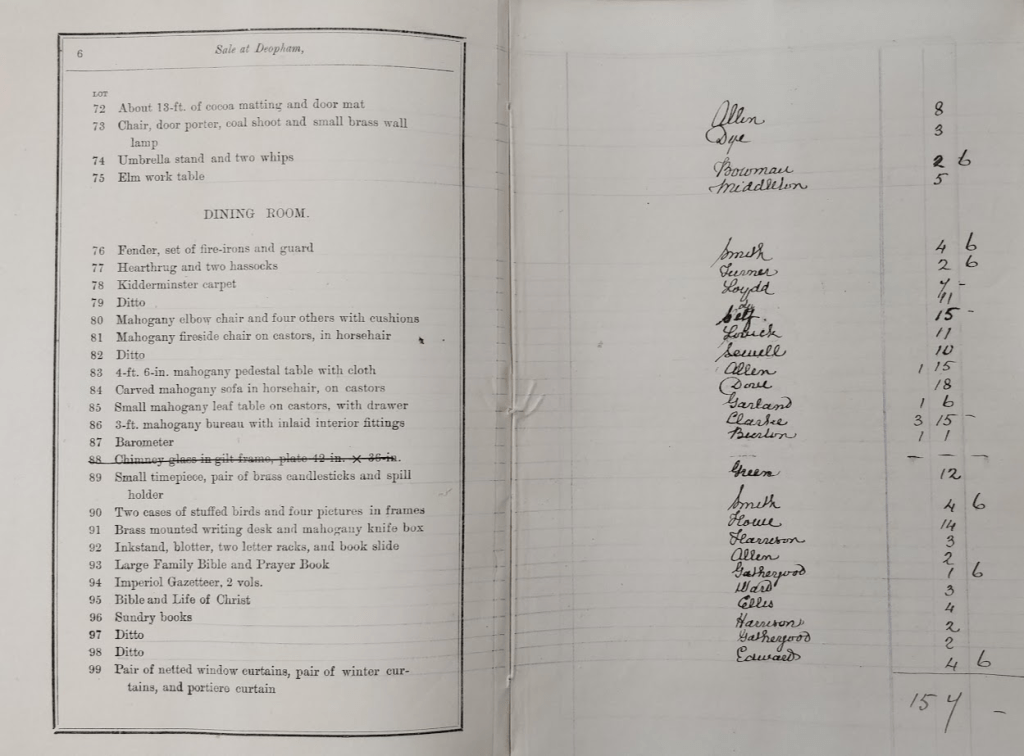 6 Sale at Deopham,
LOT
72 About 13-ft. of cocoa matting and door mat
73 Chair, door porter, coal shoot and small brass wall
lamp
74 Umbrella stand and two whips
75 Elm work table
DINING ROOM.
76 Fender, set of fire-irons and guard
77 Hearthrug and two hassocks
78 Kidderminster carpet
79 Ditto
80 Mahogany elbow chair and four others with cushions
81 Mahogany fireside chair on castors, in horsehair
82 Ditto
83 4-ft. 6-in. mahogany pedestal table with cloth
84 Carved mahogany sofa in horsehair, on castors
85 Small mahogany leaf table on castors, with drawer
86 3-ft. mahogany bureau with inlaid interior fittings
87 Barometer
88 Chimney glass in gilt frame, plate 42-in. × 36-in.
89 Small timepiece, pair of brass candlesticks and spill
holder
90 Two cases of stuffed birds and four pictures in frames
91 Brass mounted writing desk and mahogany knife box
92 Inkstand, blotter, two letter racks, and book slide
93 Large Family Bible and Prayer Book
94 Imperiol Gazetteer, 2 vols.
95 Bible and Life of Christ
96 Sundry books
97 Ditto
98 Ditto
99 Pair of netted window curtains, pair of winter cur-
tains, and portiere curtain
Allen 8
Dye 3
Bowman 2 6
Middleton 5
Smith 4 6
Turner 2 6
Loydd 7 -
do 11
Self 15 -
Lovick 11
Sewell 10
Allen 1 15
Dove 18
Garland 1 6
Clarke 3 15 -
Burton 1 1
— — —
Green 12
Smith 4 6
Howe 14
Harrison 3
Allen 2
Gatherwood 1 6
Ward 3
Ellis 4
Harrison 2
Gatherwood 2
Edwards 4 6
15 7 -